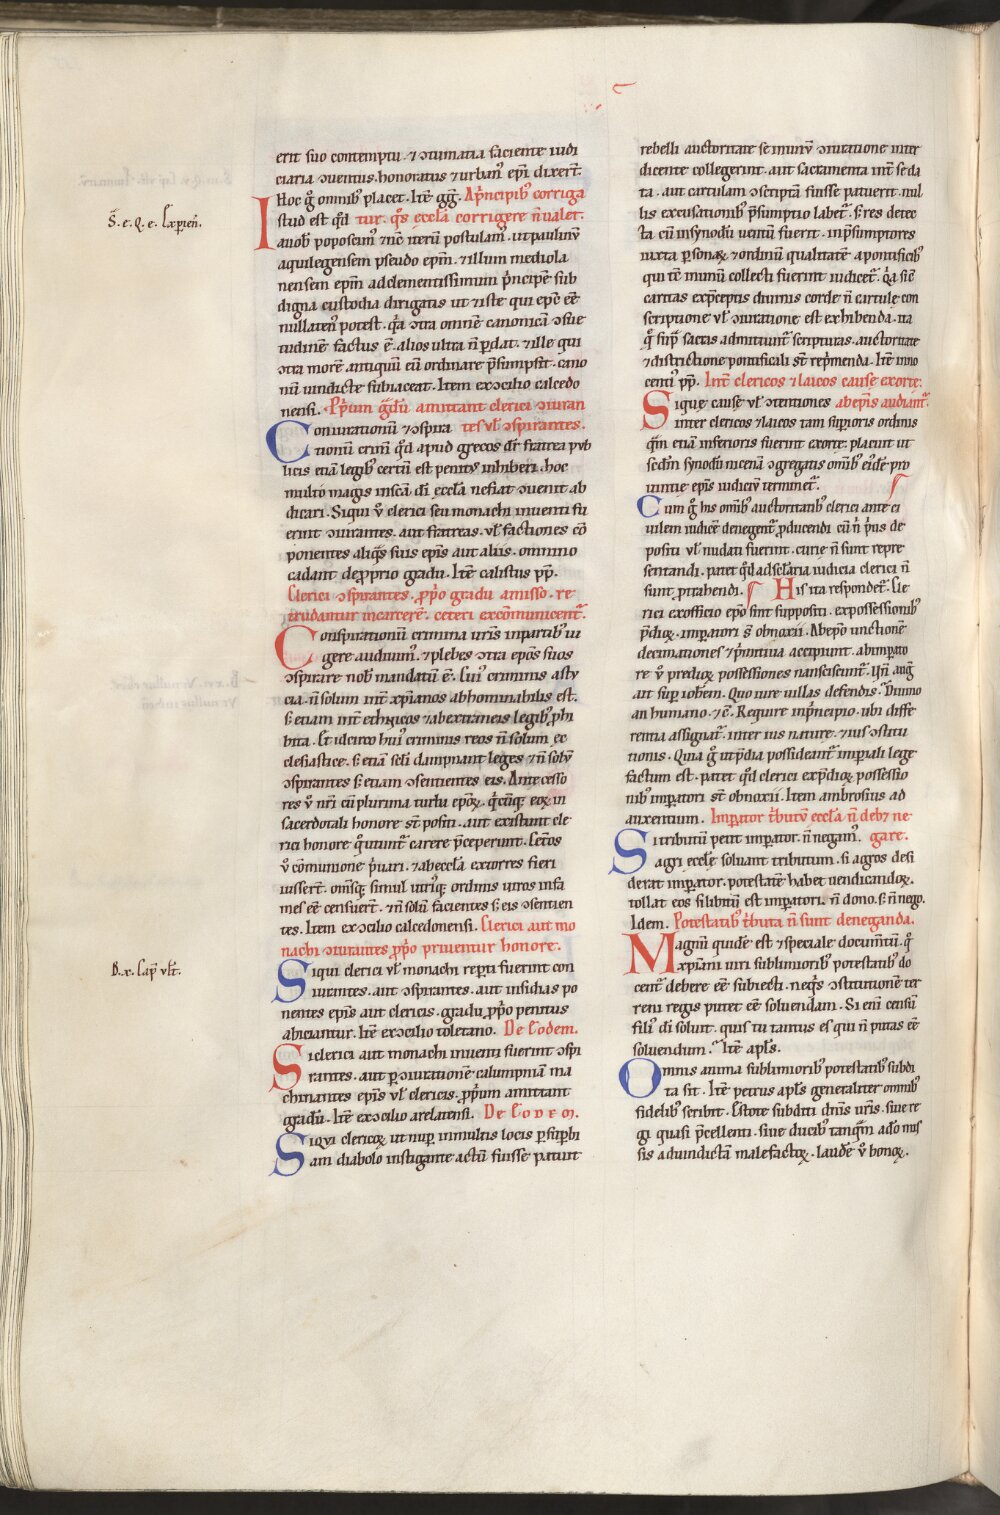 S. e. Q. e. Exp̄ien̄.
erit suo contemptu. ⁊ ↄtumatia faciente iudi
ciaria ↄuentus. honoratus ⁊ urban᷒ ep̄i dixert̄.
Hoc g̊ omnib᷒ placet. Itē gg̅. A p̄ncipib᷒ corriga
Istud est qd̄ tur. q̊s eccl̄a corrigere n̄ ualet.
a uob̄ poposcim᷒ ⁊ nc̄ iterū postulam᷒. ut paulinū
aquilegensem pseudo ep̄m. ⁊ illum mediola
nensem ep̄m ad clementissimum p̄ncipē sub
digna custodia dirigatis ut ⁊ iste qui ep̄c eē
nullaten᷒ potest. q̄a ↄtra omnē canonicā ↄsue
tudinē factus ē. alios ultra n̄ p̱dat. ⁊ ille qui
ↄtra morē antiquū eū ordinare p̄sumpsit. cano
nū uindicte subiaceat. Item ex ↄcilio calcedo
nensi. P̱rium g̊dū amittant clerici ↄiuran
Coniurationū ⁊ ↄspira tes ul̄ ↄspirantes.
tionū crim̄ qd̄ apud grecos dr̄ fratria pub
licis etiā legib᷒ certū est penit᷒ inhiberi. hoc
multo magis in sc̄a dī eccl̄a ne fiat ↄuenit ab
dicari. Siqui ṽ clerici seu monachi inuenti fu
erint ↄiurantes. aut fratreas. ul̄ factiones cō
ponentes aliq̊s suis ep̄is aut aliis. omnino
cadant de p̱prio gradu. Itē calistus pp̄.
Clerici ↄspirantes. p̱p̄o gradu amisso. re
trudantur in carcerē. ceteri excōmunicent̄.
Conspirationū crimina ur̄is in partib᷒ ui
gere audiuim᷒. ⁊ plebes ↄtra ep̄os suos
ↄspirare nob̄ mandatū ē. Cui᷒ criminis astu
cia. n̄ solum int̄ xp̄ianos abhominabilis est.
s; etiam int̄ ethnicos ⁊ ab extraneis legib᷒ phi
bita. Et idcirco hui᷒ criminis reos n̄ solum ec
clesiastice. s; etiā sc̄li dampnant leges ⁊ n̄ solū
ↄspirantes s; etiam ↄsentientes eis. Antecesso
res ṽ nr̄i cū plurima turba ep̄oꝝ. q̄cūq; eoꝝ in
sacerdotali honore st̄ positi. aut existunt cle
rici honore q̊ utunt̄ carere p̄ceperunt. Cetōs
ṽ cōmunione p̄uari. ⁊ ab eccl̄a extorres fieri
iussert̄. om̄sq; simul utriq; ordinis uiros infa
mes eē censuert̄. ⁊ n̄ solū facientes s; eis ↄsentien
tes. Item ex ↄcilio calcedonensi. Clerici aut mo
nachi ↄiurantes p̱p̄o priuentur honore.
B. x. Cap̄ ult̄.
Siqui clerici ul̄ monachi rep̱ti fuerint con
iurantes. aut ↄspirantes. aut insidias po
nentes ep̄is aut clericis. gradu p̱p̄o penitus
abiciantur. Itē ex ↄcilio toletano. De Eodem.
Si clerici aut monachi inuenti fuerint ↄspi
rantes. aut p̱ ↄiurationē calumpniā ma
chinantes ep̄is ul̄ clericis. p̱p̄um amittant
gradū. Itē ex ↄcilio arelatensi. De Eodem.
Siqui clericoꝝ ut nup̱ in multis locis p̱ sup̱bi
am diabolo instigante actū fuisse patuit
rebelli auctoritate se in unū ↄiuratione inter
dicente collegerint. aut sacramenta int̄ se da
ta. aut cartulam ↄscriptā fuisse patuerit. nul
lis excusationib᷒ p̄sumptio labet̄. s; res detec
ta cū in synodū uentū fuerit. in p̄sumptores
iuxta p̱sonaꝝ ⁊ ordinū qualitatē a pontificib᷒
qui tē in unū collecti fuerint iudicet̄. q̄a sic̄
caritas ex p̄ceptis diuinis corde n̄ cartulę con
scriptione ul̄ ↄiuratione est exhibenda. ita
q̊ sup̄ sacras admittunt̄ scripturas. auctoritate
⁊ districtione pontificali st̄ rep̄menda. Itē inno
centi᷒ pp̄. Int̄ clericos ⁊ laicos cause exorte.
Siquę cause ul̄ ↄtentiones ab ep̄is audiant̄.
inter clericos ⁊ laicos tam sup̱ioris ordinis
q̄m etiā inferioris fuerint exorte. placuit ut
sc̄dm synodū nicenā ↄgregatis omīb᷒ ei᷒dē pro
uintie ep̄is iudiciū terminet̄.
Cum g̊ his omīb᷒ auctoritatib᷒ clerici ante ci
uilem iudicē denegent̄ p̱ducendi cū n̄ p̄us de
positi ul̄ nudati fuerint. curię n̄ sunt repre
sentandi. patet qd̄ ad sclaria iudicia clerici n̄
sunt p̱trahendi. His ita respondet̄. Cle
rici ex officio ep̄o sunt suppositi. ex possessionib᷒
p̄dioꝝ. imp̱atori st̄ obnoxii. Ab ep̄o unctionē
decimationes ⁊ p̄mitiua accipiunt. ab imp̱ato
re ṽ prediorꝝ possessiones nanciscunt̄. Un̄ aug᷒
aut sup̱ ioh̄em. Quo iure uillas defendis. Diuino
an humano. ⁊ c̄. Require in p̄ncipio. ubi diffe
rentia assignat̄. inter ius nature. ⁊ ius ↄstitu
tionis. Quia g̊ ut p̄dia possideant̄ imp̱iali lege
factum est. patet qd̄ clerici ex p̄dioꝝ possessio
nib᷒ imp̱atori st̄ obnoxii. Item ambrosius ad
auxentium. Imp̱ator t̄butū eccl̄a n̄ deb; ne
Si tributū petit imp̱ator. n̄ negam᷒. gare.
agri ecclę soluant tributum. si agros desi
derat imp̱ator. potestatē habet uendicandoꝝ.
tollat eos si libitū est imp̱atori. n̄ dono. s; n̄ nego.
Idem. Potestatib᷒ t̄buta n̄ sunt deneganda.
Magnū quidē est ⁊ speciale documt̄ū. q̊
xp̄iani uiri sublimiorib᷒ potestatib᷒ do
cent̄ debere eē subiecti. neq̊s ↄstitutionē ter
reni regis putet eē soluendam. Si enī censū
fili᷒ dī soluit. quis tu tantus es qui n̄ putas eē
soluendum. Itē apl̄s.
Omnis anima sublimiorib᷒ potestatib᷒ subdi
ta sit. Itē petrus apl̄s generaliter omnib᷒
fidelib᷒ scribit. Estote subditi dn̄is ur̄is. siue re
gi quasi p̄cellenti. siue ducib᷒ tanq̄m ab eo mis
sis ad uindictā malefactoꝝ. laudē ṽ bonoꝝ.